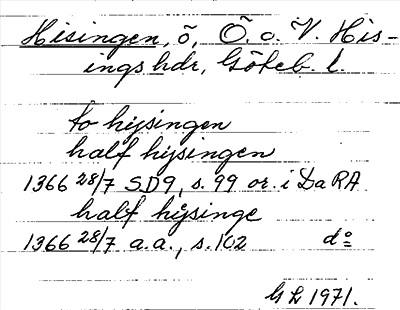 Hisingen, ö, Ö. o. V. His-
ings hdr, Göteb. l
to hijsingen
half hijsingen
1366 28/7 SD9, s. 99 or. i Da RA
half hijsinge
1366 28/7 a.a., s. 102 do
G L 1971.